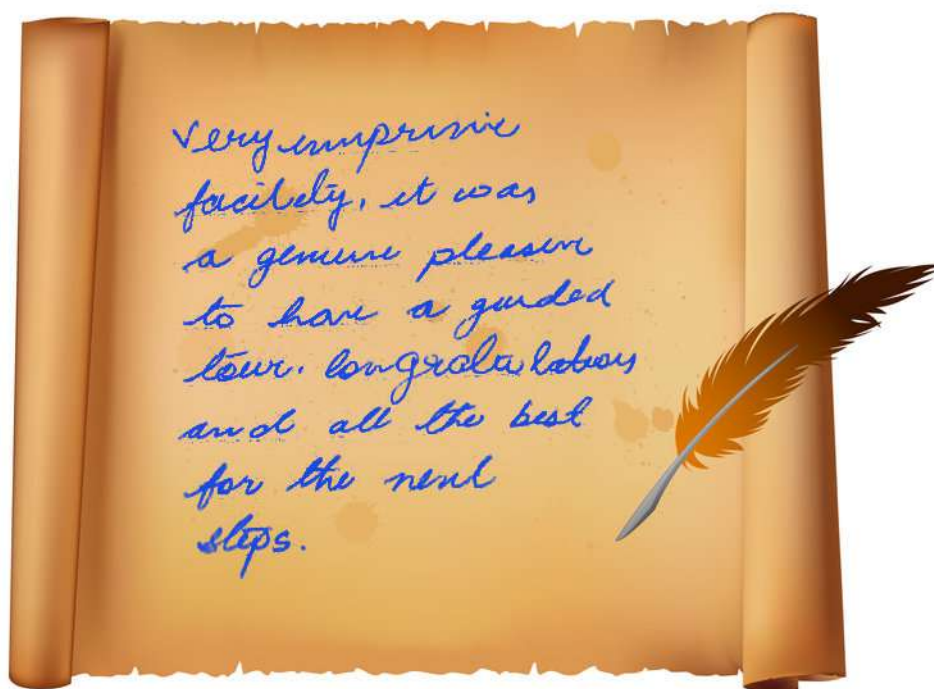 Very impressive
facility, it was
a genuine pleasure
to have a guided
tour. Congratulations
and all the best
for the next
steps.